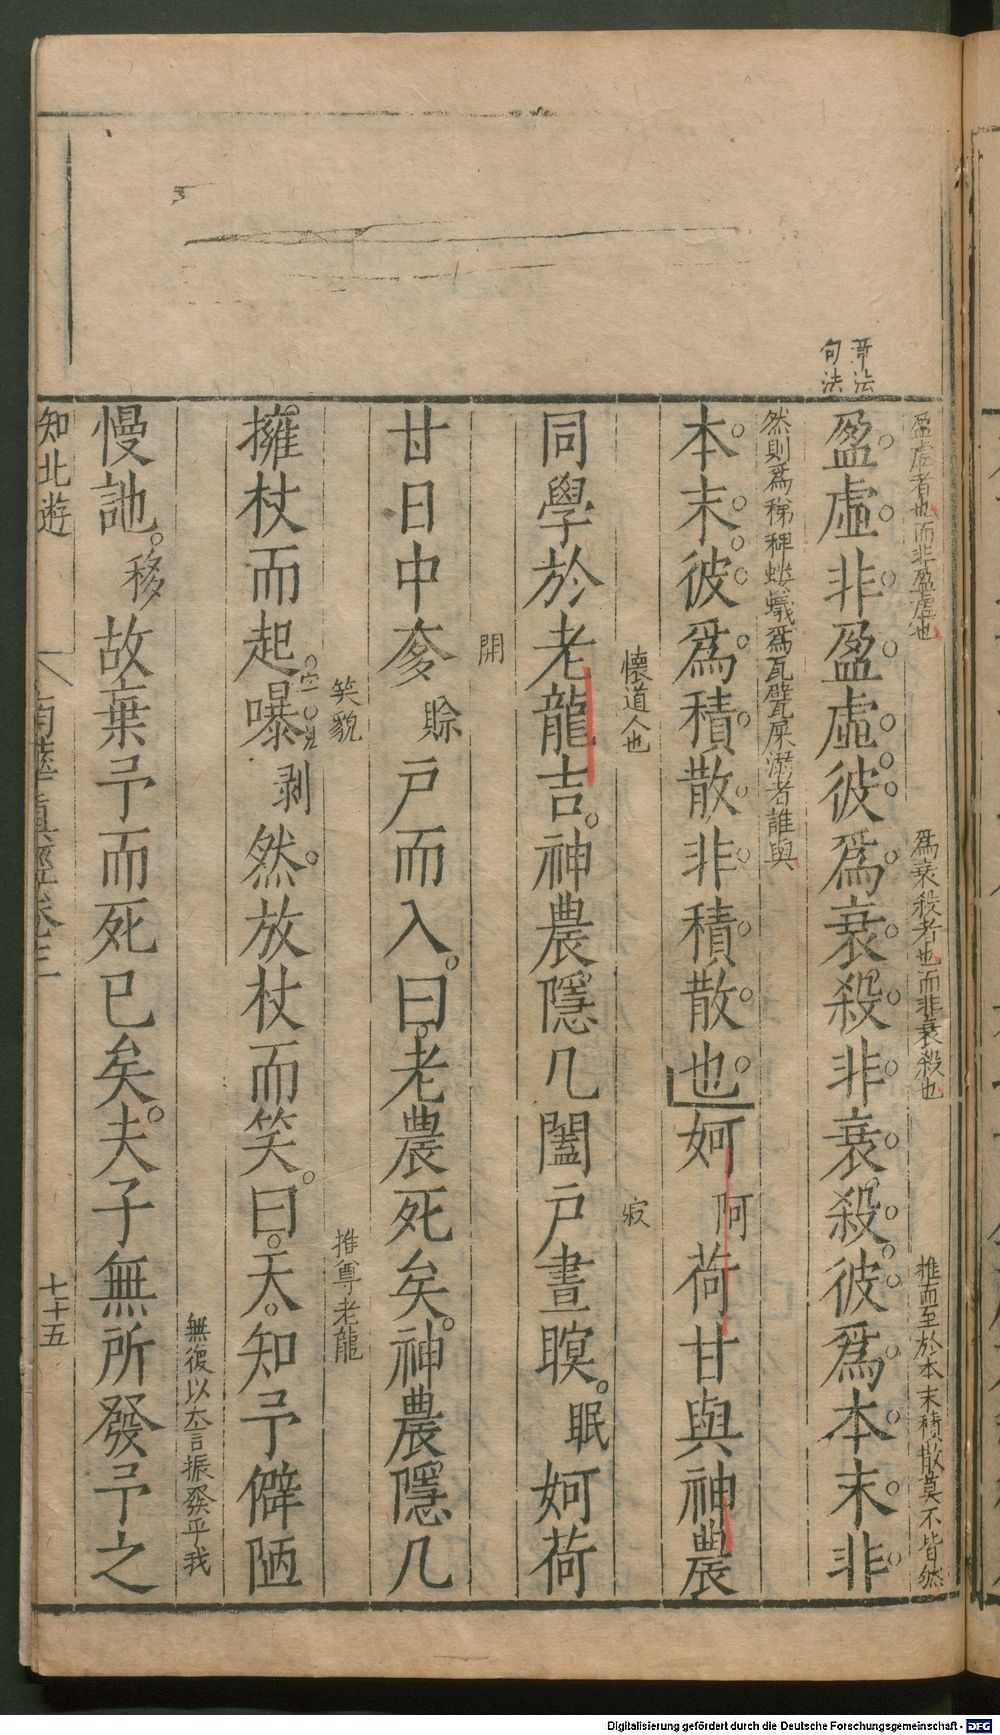 章法
句法
盈虛者也而非盈虛也
爲衰殺者也而非衰殺也
推而至於本末積散莫不皆然
盈虛非盈虛彼爲衰殺非衰殺彼爲本末非
然則爲稊稗螻蟻爲瓦甓屎溺者誰與
本末彼爲積散非積散也妸阿荷甘與神農
懷道人也
寂
同學於老龍吉神農隱几闔戶晝瞑眠妸荷
開
甘日中奓賒戶而入曰老農死矣神農隱几
笑貌
推尊老龍
擁杖而起曝剥然放杖而笑曰天知予僻陋
無復以至言振發乎我
慢訑移故棄予而死已矣夫子無所發予之
知北遊
南華真經卷三
七十五
Digitalisierung gefördert durch die Deutsche Forschungsgemeinschaft - DFG